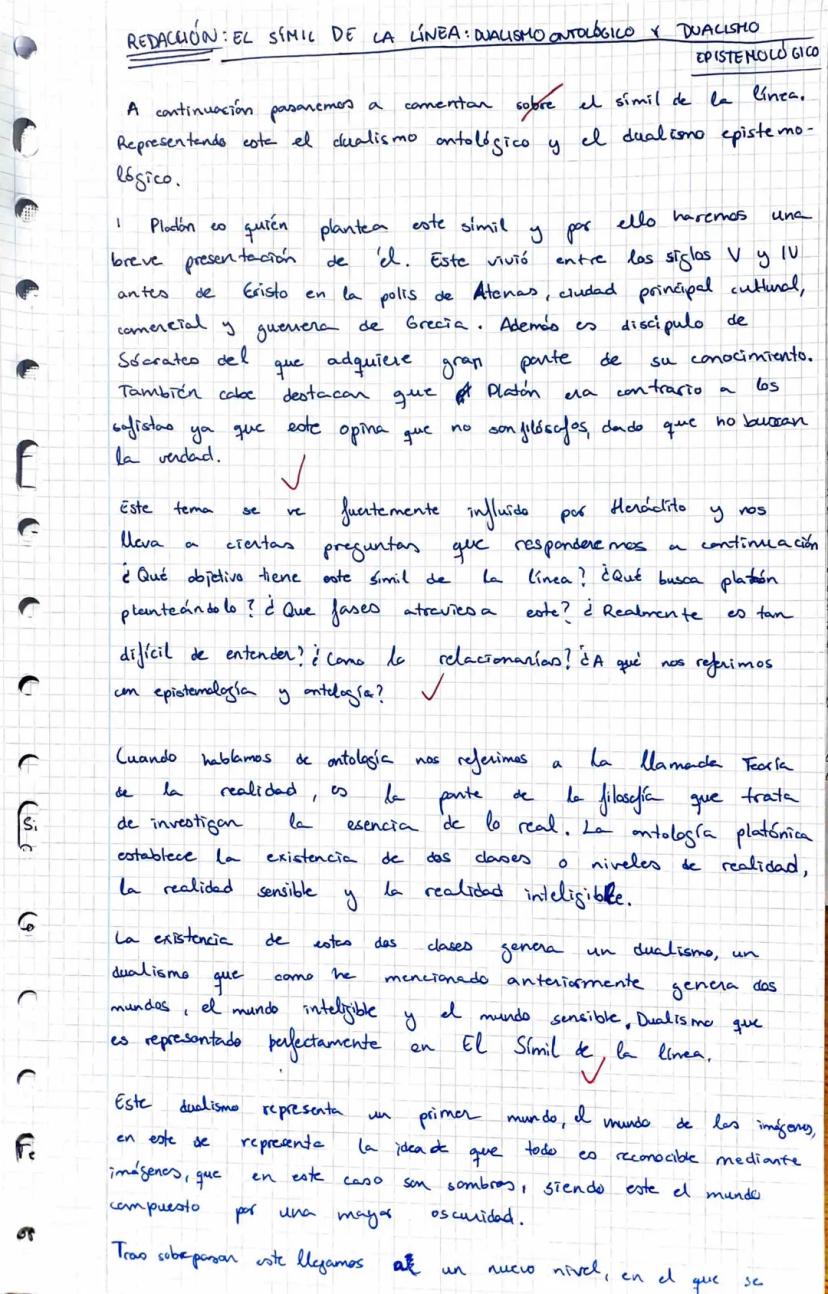 REDACCIÓN: EL SÍMIL DE LA LÍNEA: DUALISMO ONTOLÓGICO Y DUALISMO
EPISTEMOLÓGICO
A continuación pasaremos a comentar sobre el símil de la línea.
Representendo este el dualismo ontológico y el dualismo epistemo-
lógico.
Platón es quién plantea este símil y por ello haremos una
breve presentación de él. Este vivió entre los siglos V y IV
antes de Cristo en la polis de Atenas, ciudad principal cultural,
comercial y guerrera de Grecia. Además es discipulo de
Sócrates del que adquiere gran parte de su conocimiento.
También cabe destacar que Platón era contrario a los
sofistas ya que este opina que no son filósofos, dado que no buscan
la verdad.
Este tema se ve fuertemente influido por Heráclito y nos
lleva a ciertas preguntas que responderemos a continuación
¿Qué objetivo tiene este símil de la línea? ¿Qué busca platón
planteándolo? ¿Que fases atraviesa este? ¿Realmente es tan
difícil de entender? ¿Como lo relacionarías? ¿A qué nos referimos
con epistemología y ontología?
Cuando hablamos de ontología nos referimos a la llamada Teoría
de la realidad, es la parte de la filosofía que trata
de investigar la esencia de lo real. La ontología platónica
establece la existencia de dos clases o niveles de realidad,
la realidad sensible y la realidad inteligible.
La existencia de estas dos clases genera un dualismo, un
dualismo que como he mencionado anteriormente genera dos
mundos, el mundo inteligible y el mundo sensible. Dualismo que
es representado perfectamente en El Símil de la línea.
Este dualismo representa un primer mundo, el mundo de las imágenes,
en este se representa la idea de que todo es reconocible mediante
imágenes, que en este caso son sombras, siendo este el mundo
compuesto por una mayor oscuridad.
Tras sobrepasar este llegamos a un nuevo nivel, en el que se